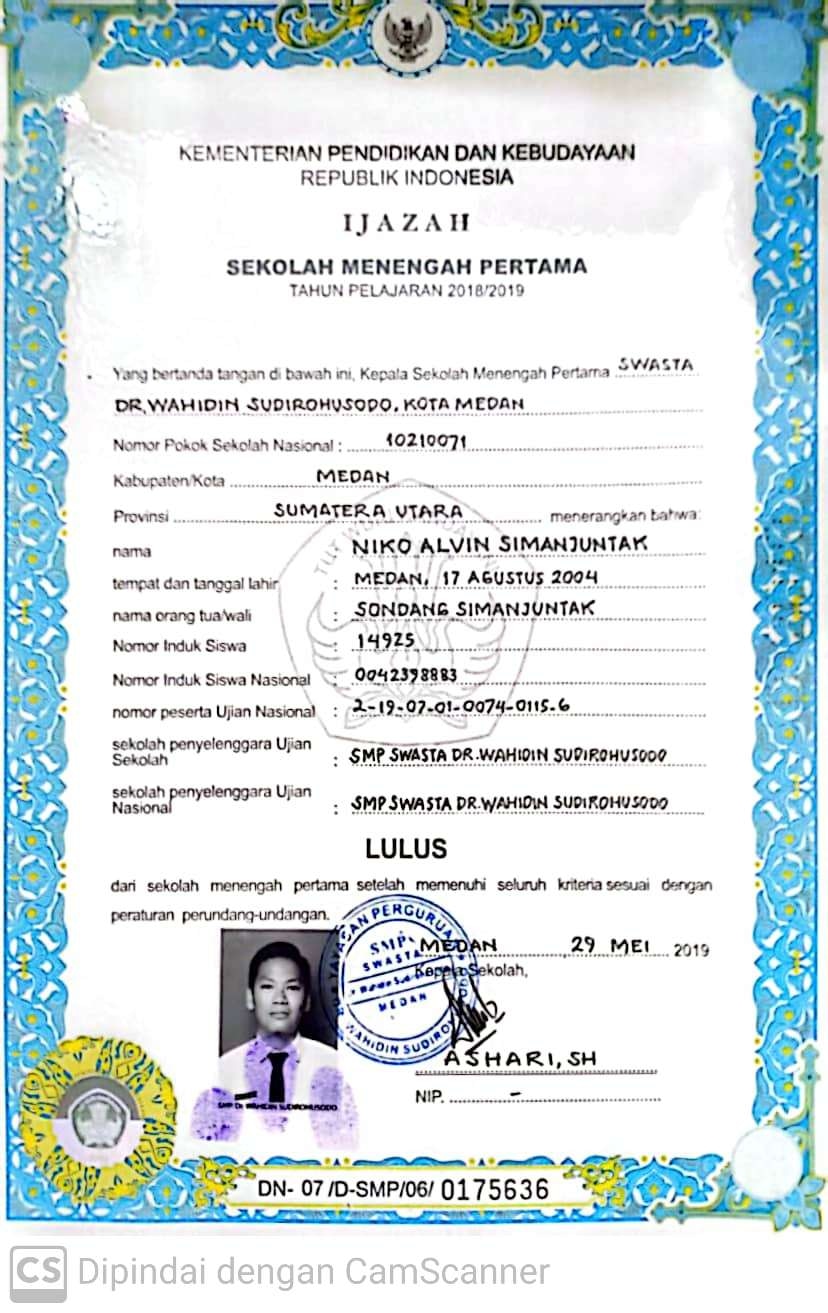 KEMENTERIAN PENDIDIKAN DAN KEBUDAYAAN
REPUBLIK INDONESIA
IJAZAH
SEKOLAH MENENGAH PERTAMA
TAHUN PELAJARAN 2018/2019
Yang bertanda tangan di bawah ini, Kepala Sekolah Menengah Pertama SWASTA
DR.WAHIDIN SUDIROHUSODO, KOTA MEDAN
Nomor Pokok Sekolah Nasional : 10210071
Kabupaten/Kota MEDAN
Provinsi SUMATERA UTARA menerangkan bahwa:
nama NIKO ALVIN SIMANJUNTAK
tempat dan tanggal lahir : MEDAN, 17 AGUSTUS 2004
nama orang tua/wali : SONDANG SIMANJUNTAK
Nomor Induk Siswa : 14925
Nomor Induk Siswa Nasional : 0042398883
nomor peserta Ujian Nasional : 2-19-07-01-0074-0115-6
sekolah penyelenggara Ujian
Sekolah : SMP SWASTA DR.WAHIDIN SUDIROHUSODO
sekolah penyelenggara Ujian
Nasional : SMP SWASTA DR.WAHIDIN SUDIROHUSODO
LULUS
dari sekolah menengah pertama setelah memenuhi seluruh kriteria sesuai dengan
peraturan perundang-undangan.
MEDAN, 29 MEI 2019
Kepala Sekolah,
SMP
SWASTA
MEDAN
ASHARI, SH
NIP. -
SMP Dr WAHIDIN SUDIROHUSODO
DN- 07 /D-SMP/06/ 0175636
CS Dipindai dengan CamScanner